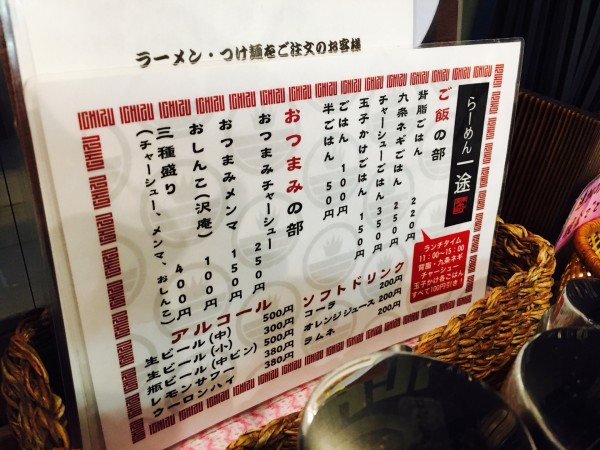 ラーメン・つけ麺をご注文のお客様
らーめん 一途
ご飯の部
背脂ごはん 220円
九条ネギごはん 250円
チャーシューごはん 350円
玉子かけごはん 150円
ごはん 100円
半ごはん 50円
おつまみの部
おつまみチャーシュー 250円
おつまみメンマ 150円
おしんこ(沢庵) 100円
三種盛り 400円
(チャーシュー、メンマ、おしんこ)
ランチタイム
11:00〜15:00
背脂・九条ネギ
チャーシュー
玉子かけ各ごはん
すべて100円引き!
アルコール
生ビール(中) 500円
生ビール(小) 300円
瓶ビール(中ビン) 500円
レモンサワー 380円
ウーロンハイ 380円
ソフトドリンク
コーラ 200円
オレンジジュース 200円
ラムネ 200円
ICHIZU ICHIZU ICHIZU ICHIZU ICHIZU ICHIZU